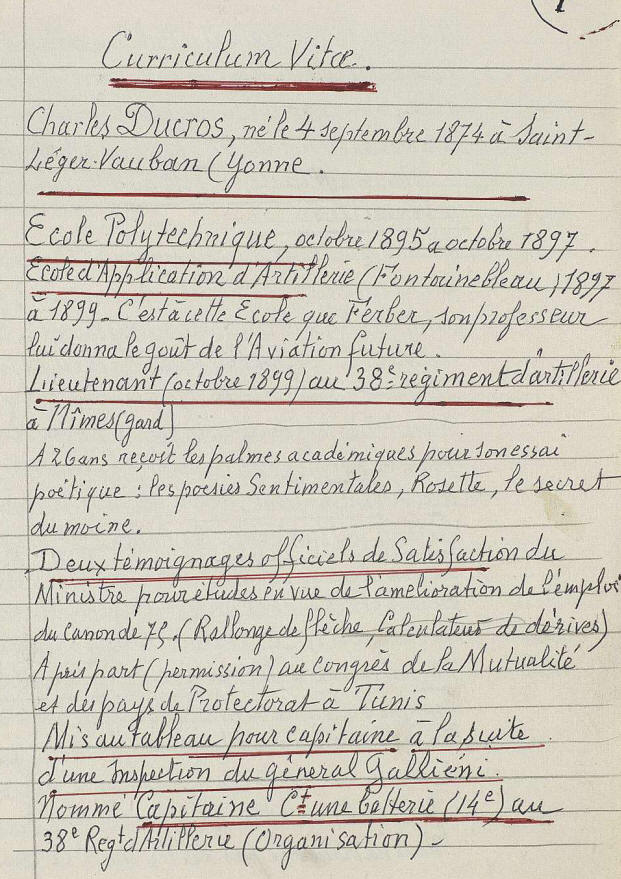 1
Curriculum Vitæ.
Charles Ducros, né le 4 septembre 1874 à Saint-
Léger-Vauban (Yonne.
Ecole Polytechnique, octobre 1895 a octobre 1897.
Ecole d'Application d'Artillerie (Fontainebleau) 1897
à 1899. C'est à cette Ecole que Ferber, son professeur
lui donna le goût de l'Aviation future.
Lieutenant (octobre 1899) au 38e régiment d'artillerie
à Nîmes (gard)
A 26 ans reçoit les palmes académiques pour son essai
poétique : les poesies Sentimentales, Rosette, le secret
du moine.
Deux témoignages officiels de Satisfaction du
Ministre pour études en vue de l'amelioration de l'emploi
du canon de 75. (Rallonge de flèche, Calculateur de dérives)
A pris part (permission) au congrès de la Mutualité
et des pays de Protectorat à Tunis
Mis au tableau pour capitaine à la suite
d'une Inspection du général Galliéni.
Nommé Capitaine Ct une batterie (14e) au
38e Regt d'Artillerie (Organisation) -